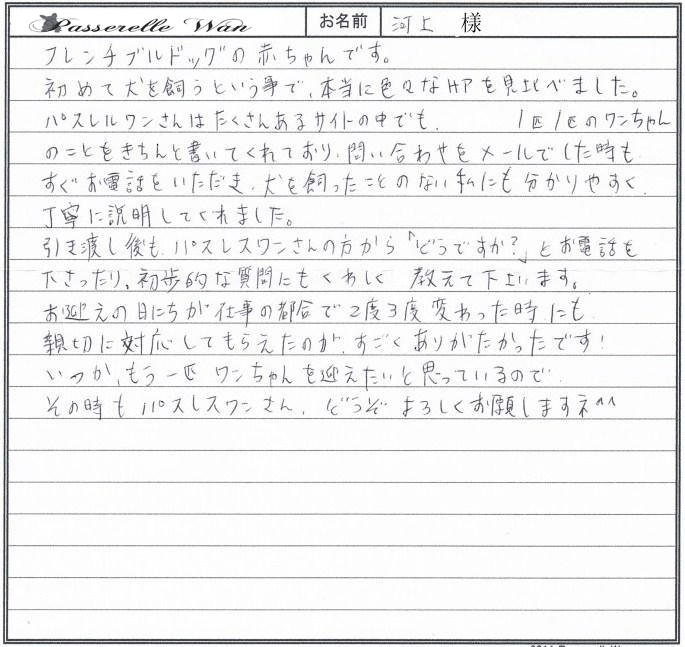 Passerelle Wan お名前 河上 様
フレンチブルドッグの赤ちゃんです。
初めて犬を飼うという事で、本当に色々なHPを見比べました。
パスレルワンさんはたくさんあるサイトの中でも、 1匹1匹のワンちゃん
のことをきちんと書いてくれており、問い合わせをメールでした時も
すぐお電話をいただき、犬を飼ったことのない私にも分かりやすく、
丁寧に説明してくれました。
引き渡し後も、パスレスワンさんの方から「どうですか?」とお電話を
下さったり、初歩的な質問にもくわしく 教えて下さいます。
お迎えの日にちが仕事の都合で2度3度変わった時にも
親切に対応してもらえたのが、すごくありがたかったです!
いつか、もう一匹ワンちゃんを迎えたいと思っているので、
その時もパスレスワンさん、どうぞよろしくお願しますネ^^